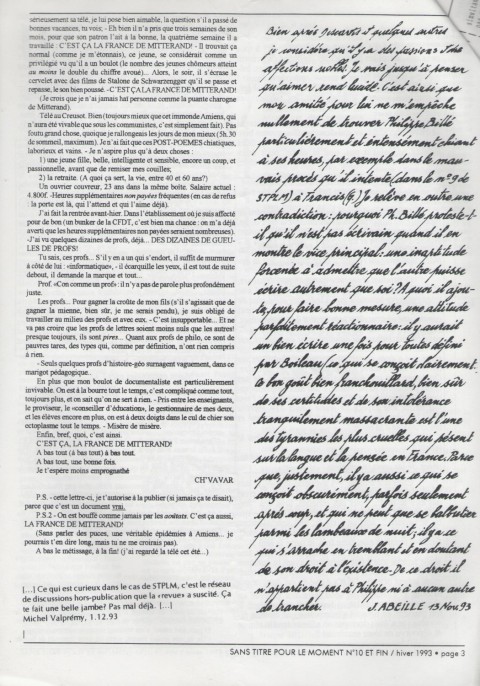 sérieusement sa télé, je lui pose bien aimable, la question s'il a passé de
bonnes vacances, tu vois; - Eh bien il n'a pris que trois semaines de son
mois, pour que son patron l'ait à la bonne, la quatrième semaine il a
travaillé : C'EST ÇA LA FRANCE DE MITTERAND! - Il trouvait ça
normal (comme je m'étonnais), ce jeune, se considérait comme un
privilégié vu qu'il a un boulot (le nombre des jeunes chômeurs atteint
au moins le double du chiffre avoué)... Alors, le soir, il s'écrase le
cervelet avec des films de Stalone de Schwarzenegger qu'il se passe et
repasse, le son bien poussé. - C'EST ÇA LA FRANCE DE MITTERAND!
(Je crois que je n'ai jamais haï personne comme la puante charogne
de Mitterand).
Télé au Creusot. Bien (toujours mieux que cet immonde Amiens, qui
n'aura été vivable que sous les communistes, c'est simplement fait). Pas
foutu grand chose, quoique je rallongeais les jours de mon mieux (5h.30
de sommeil, maximum). Je n'ai fait que ces POST-POEMES chiatiques,
laborieux et vains. - Je n'aspire plus qu'à deux choses :
1) une jeune fille, belle, intelligente et sensible, encore un coup, et
passionnelle, avant que de remiser mes couilles;
2) la retraite. (A quoi ça sert, la vie, entre 40 et 60 ans?)
Un ouvrier couvreur, 23 ans dans la même boîte. Salaire actuel :
4.800F. -Heures supplémentaires non payées fréquentes (en cas de refus
: la porte est là qui t'attend et qui t'aime déjà).
J'ai fait la rentrée avant-hier. Dans l'établissement où je suis affecté
pour de bon (un bunker de la CFDT, c'est bien ma chance : on m'a déjà
averti que les heures supplémentaires non payées seraient nombreuses).
-J'ai vu quelques dizaines de profs, déjà... DES DIZAINES DE GUEU-
LES DE PROFS!
Tu sais, ces profs... S'il y en a un qui s'endort, il suffit de murmurer
à côté de lui : «informatique», - il écarquille les yeux, il est tout de suite
debout, il demande la marque et tout...
Prof. «Con comme un prof» : il n'y a pas de parole plus profondément
juste.
Les profs... Pour gagner la croûte de mon fils (s'il s'agissait que de
gagner la mienne, bien sûr, je me serais pendu), je suis obligé de
travailler au milieu des profs et avec eux. - C'est insupportable... Et ne
va pas croire que les profs de lettres soient moins nuls que les autres!
presque toujours, ils sont pires. Quant aux profs de philo, ce sont de
pauvres tares, des types qui, comme par définition, n'ont rien compris
à rien.
- Seuls quelques profs d'histoire-géo surnagent vaguement, dans ce
marigot pédagogique..
En plus que mon boulot de documentaliste est particulièrement
invivable. On est à la bourre tout le temps, c'est compliqué comme tout,
toujours plus, et on sait qu'on ne sert à rien. - Pris entre les enseignants,
le proviseur, le «conseiller d'éducation», le gestionnaire de mes deux,
et les élèves encore en plus, on est à deux doigts dans le cul de chier son
ectoplasme tout le temps. - Misère de misère.
Enfin, bref, quoi, c'est ainsi.
C'EST ÇA, LA FRANCE DE MITTERAND!
A bas tout (à bas tout) à bas tout.
A bas tout, une bonne fois.
Je t'espère moins emprognathé
CH'VAVAR
P.S. - cette lettre-ci, je t'autorise à la publier (si jamais ça te disait),
parce que c'est un document vrai.
P.S.2 - On est bouffé comme jamais par les aoûtats. C'est ça aussi,
LA FRANCE DE MITTERAND!
(Sans parler des puces, une véritable épidémies à Amiens... je
pourrais t'en dire long, mais tu ne me croirais pas).
A bas le métissage, à la fin! (j'ai regardé la télé cet été...)
[...] Ce qui est curieux dans le cas de STPLM, c'est le réseau
de discussions hors-publication que la «revue» a suscité. Ça
te fait une belle jambe? Pas mal déjà. [...]
Michel Valprémy, 1.12.93
Bien après Descartes et quelques autres
je considère qu'il y a des passions &
affections utiles. Je vais jusqu'à penser
qu'aimer rend lucide. C'est ainsi que
mon amitié pour lui ne m'empêche
nullement de trouver Philippe Billé
particulièrement et intensément chiant
à ses heures, par exemple dans le mau-
vais procès qu'il intente (dans le n° 9 de
STPLM) à Francis(?). Je relève en outre une
contradiction : pourquoi Ph. Billé proteste-t-
il qu'il n'est pas écrivain quand il en
montre le vice principal : une inaptitude
forcenée à admettre que l'autre puisse
écrire autrement que soi? A quoi il ajou-
te, pour faire bonne mesure, une attitude
parfaitement réactionnaire : il y aurait
un bien écrire une fois pour toutes défini
par Boileau (ce qui se conçoit clairement...)
Ce bon goût bien franchouillard, bien sûr
de ses certitudes et de son intolérance
tranquillement massacrante est l'une
des tyrannies les plus cruelles qui pèsent
sur la langue et la pensée en France. Parce
que, justement, il y a aussi ce qui se
conçoit obscurément, parfois seulement
après coup, et qui ne peut que se balbutier
parmi les lambeaux de nuit; il y a ce
qui s'arrache en tremblant et en doutant
de son droit à l'existence. De ce droit il
n'appartient pas à Philippe ni à aucun autre
de trancher. J. ABEILLE 13 Nov. 93
SANS TITRE POUR LE MOMENT N°10 ET FIN / hiver 1993 • page 3